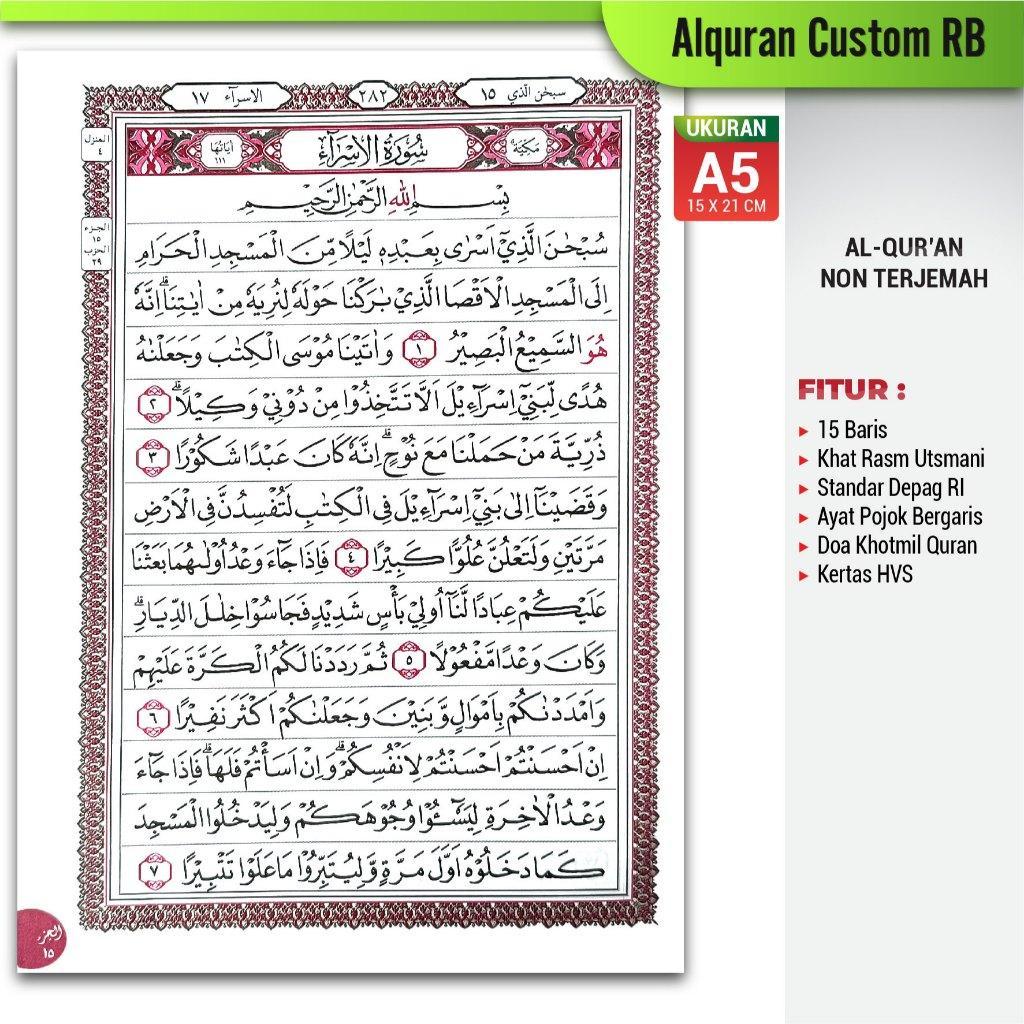 Alquran Custom RB
سبحٰن الّذي ١٥
٢٨٢
الاسرآء ١٧
المنزل
٤
مكيّة
سُوْرَةُ الْاِسْرَاۤءِ
اٰيَاتُهَا
١١١
بِسْمِ اللّٰهِ الرَّحْمٰنِ الرَّحِيْمِ
الجزء
١٥
الحزب
٢٩
سُبْحٰنَ الَّذِيْٓ اَسْرٰى بِعَبْدِهٖ لَيْلًا مِّنَ الْمَسْجِدِ الْحَرَامِ
اِلَى الْمَسْجِدِ الْاَقْصَا الَّذِيْ بٰرَكْنَا حَوْلَهٗ لِنُرِيَهٗ مِنْ اٰيٰتِنَاۗ اِنَّهٗ
هُوَ السَّمِيْعُ الْبَصِيْرُ ١ وَاٰتَيْنَا مُوْسَى الْكِتٰبَ وَجَعَلْنٰهُ
هُدًى لِّبَنِيْٓ اِسْرَاۤءِيْلَ اَلَّا تَتَّخِذُوْا مِنْ دُوْنِيْ وَكِيْلًاۗ ٢
ذُرِّيَّةَ مَنْ حَمَلْنَا مَعَ نُوْحٍۗ اِنَّهٗ كَانَ عَبْدًا شَكُوْرًا ٣
وَقَضَيْنَآ اِلٰى بَنِيْٓ اِسْرَاۤءِيْلَ فِى الْكِتٰبِ لَتُفْسِدُنَّ فِى الْاَرْضِ
مَرَّتَيْنِ وَلَتَعْلُنَّ عُلُوًّا كَبِيْرًا ٤ فَاِذَا جَاۤءَ وَعْدُ اُوْلٰىهُمَا بَعَثْنَا
عَلَيْكُمْ عِبَادًا لَّنَآ اُولِيْ بَأْسٍ شَدِيْدٍ فَجَاسُوْا خِلٰلَ الدِّيَارِۗ
وَكَانَ وَعْدًا مَّفْعُوْلًا ٥ ثُمَّ رَدَدْنَا لَكُمُ الْكَرَّةَ عَلَيْهِمْ
وَاَمْدَدْنٰكُمْ بِاَمْوَالٍ وَّبَنِيْنَ وَجَعَلْنٰكُمْ اَكْثَرَ نَفِيْرًا ٦
اِنْ اَحْسَنْتُمْ اَحْسَنْتُمْ لِاَنْفُسِكُمْۗ وَاِنْ اَسَأْتُمْ فَلَهَاۗ فَاِذَا جَاۤءَ
وَعْدُ الْاٰخِرَةِ لِيَسٗۤـُٔوْا وُجُوْهَكُمْ وَلِيَدْخُلُوا الْمَسْجِدَ
كَمَا دَخَلُوْهُ اَوَّلَ مَرَّةٍ وَّلِيُتَبِّرُوْا مَا عَلَوْا تَتْبِيْرًا ٧
الجزء
١٥
UKURAN
A5
15 X 21 CM
AL-QUR'AN
NON TERJEMAH
FITUR :
15 Baris
Khat Rasm Utsmani
Standar Depag RI
Ayat Pojok Bergaris
Doa Khotmil Quran
Kertas HVS